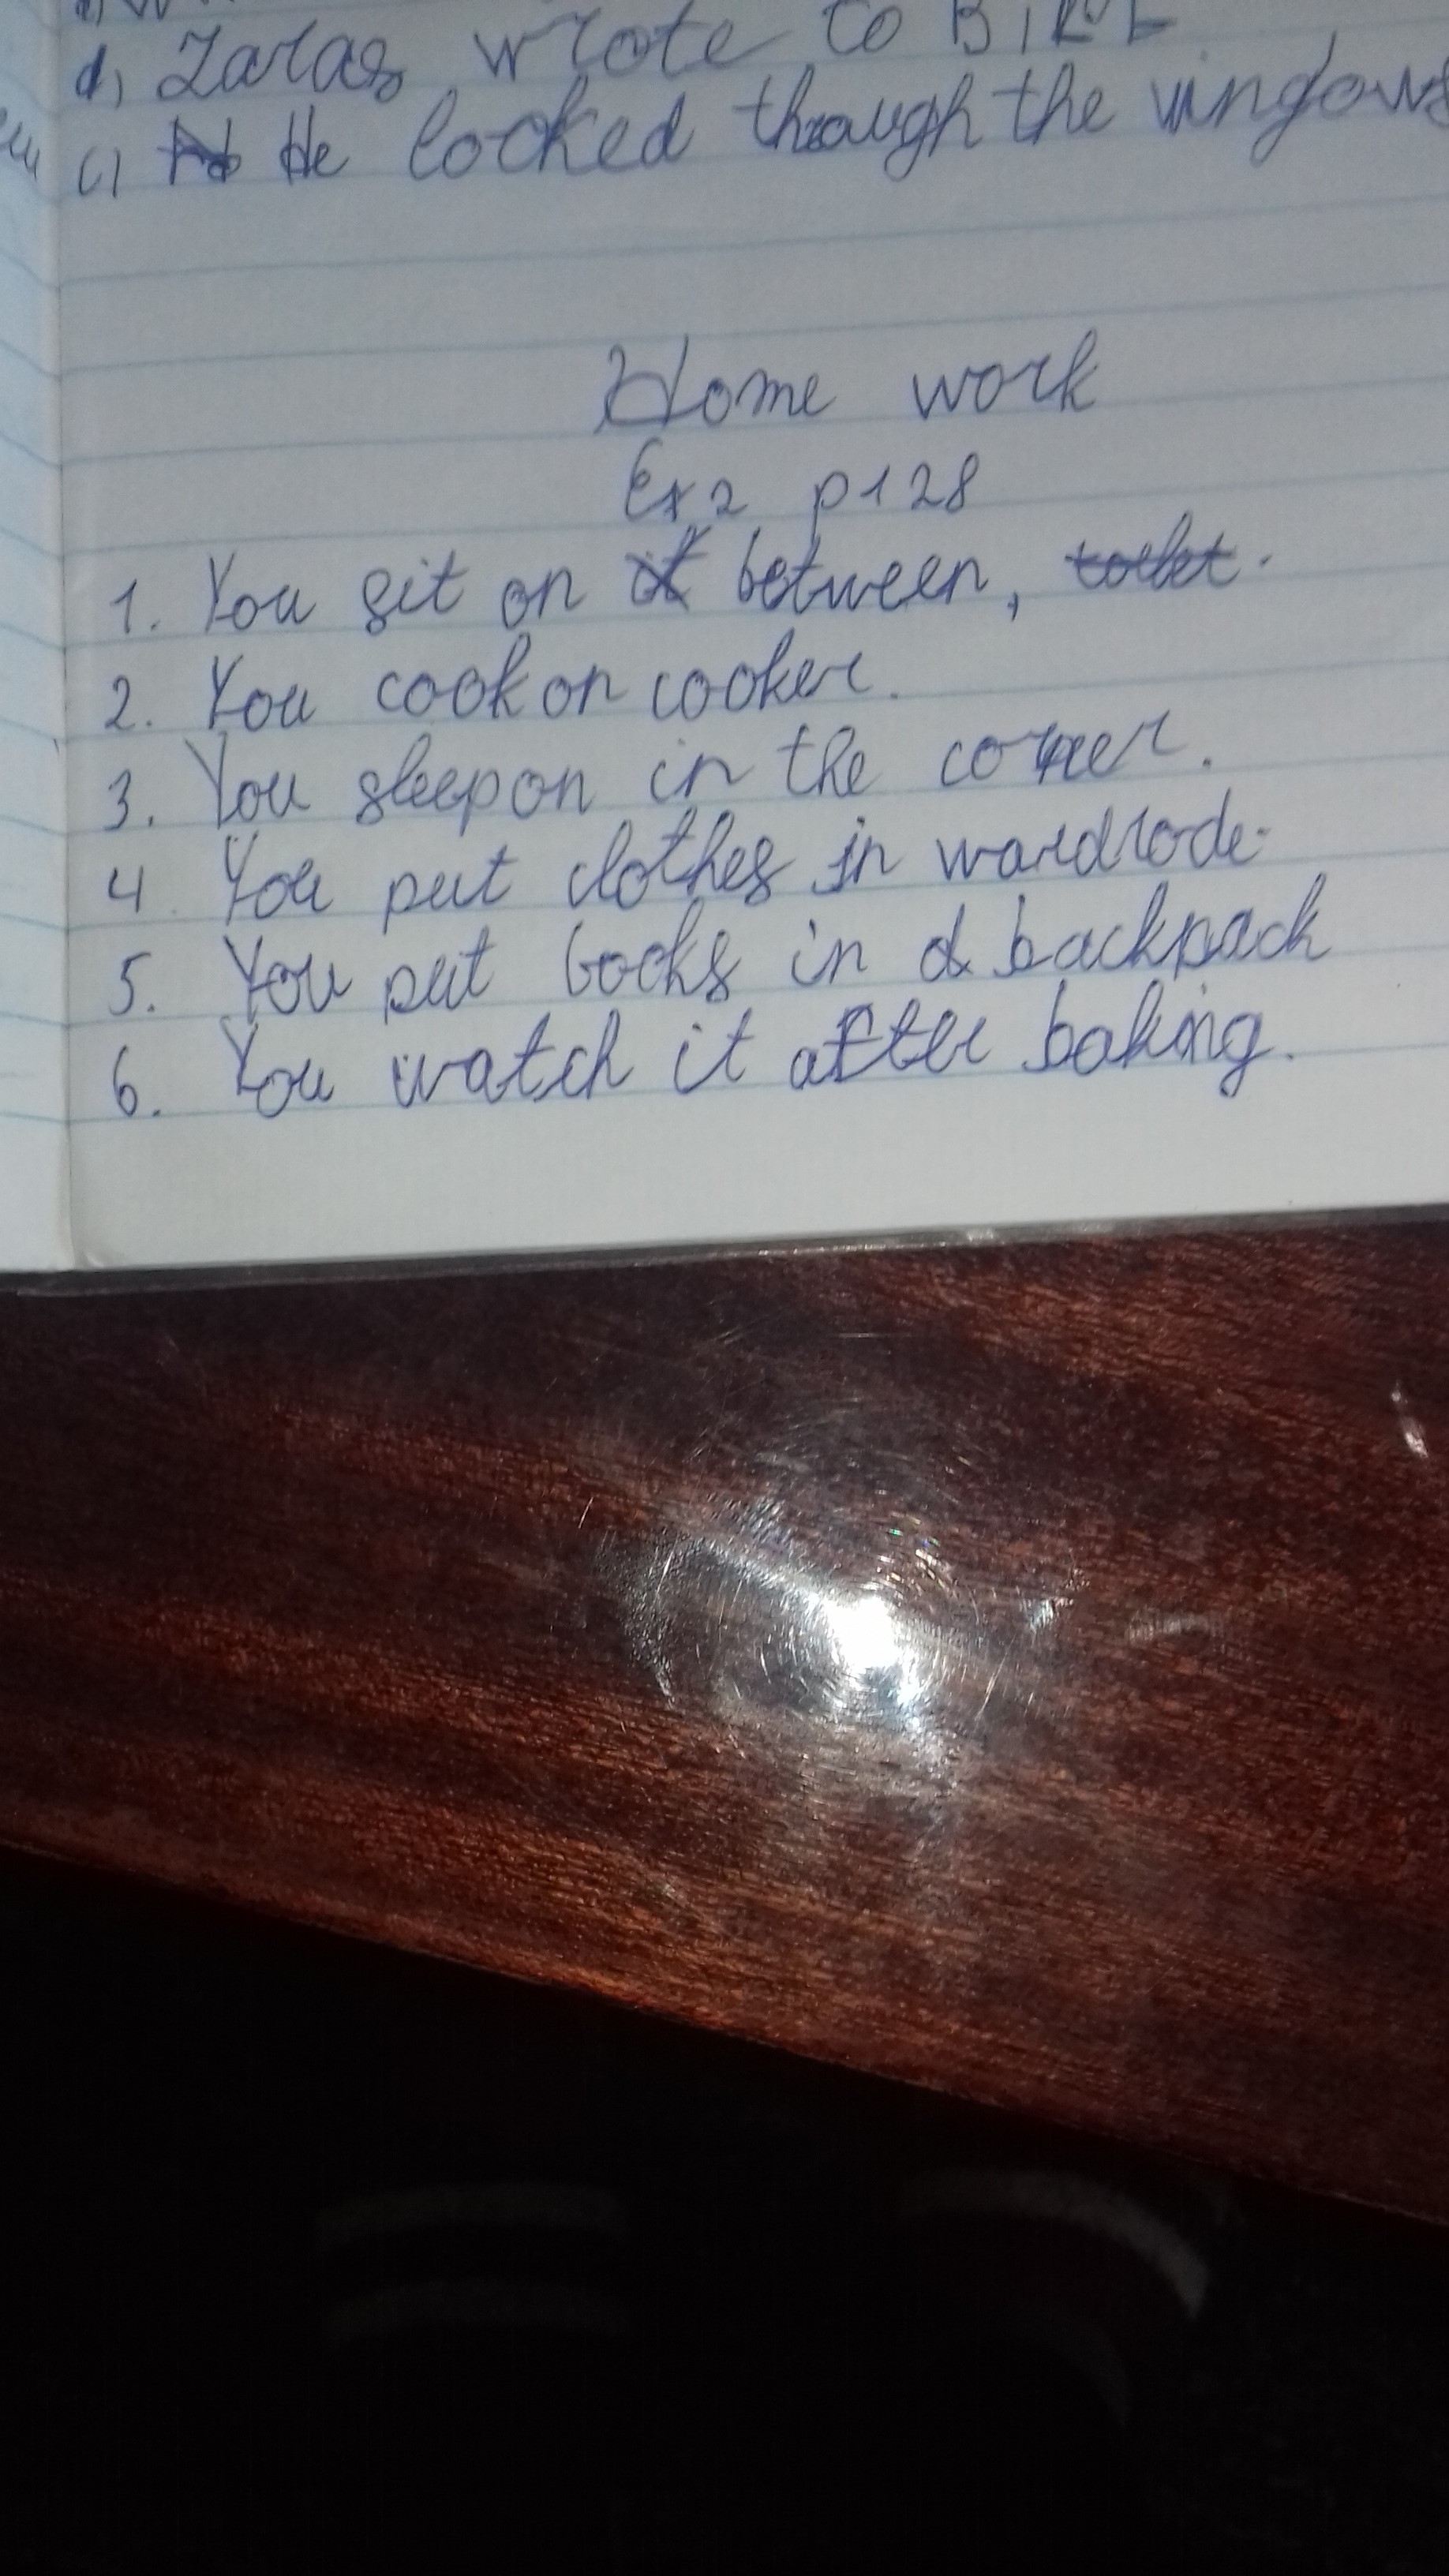 d, Zaras wrote to
c, He looked through the vindows
Home work
Ex 2 p128
1. You sit on between,
2. You cook on cooker.
3. You sleep on in the corner.
4 You put clothes in wardrode.
5. You put books in a backpack
6. You watch it after baking.